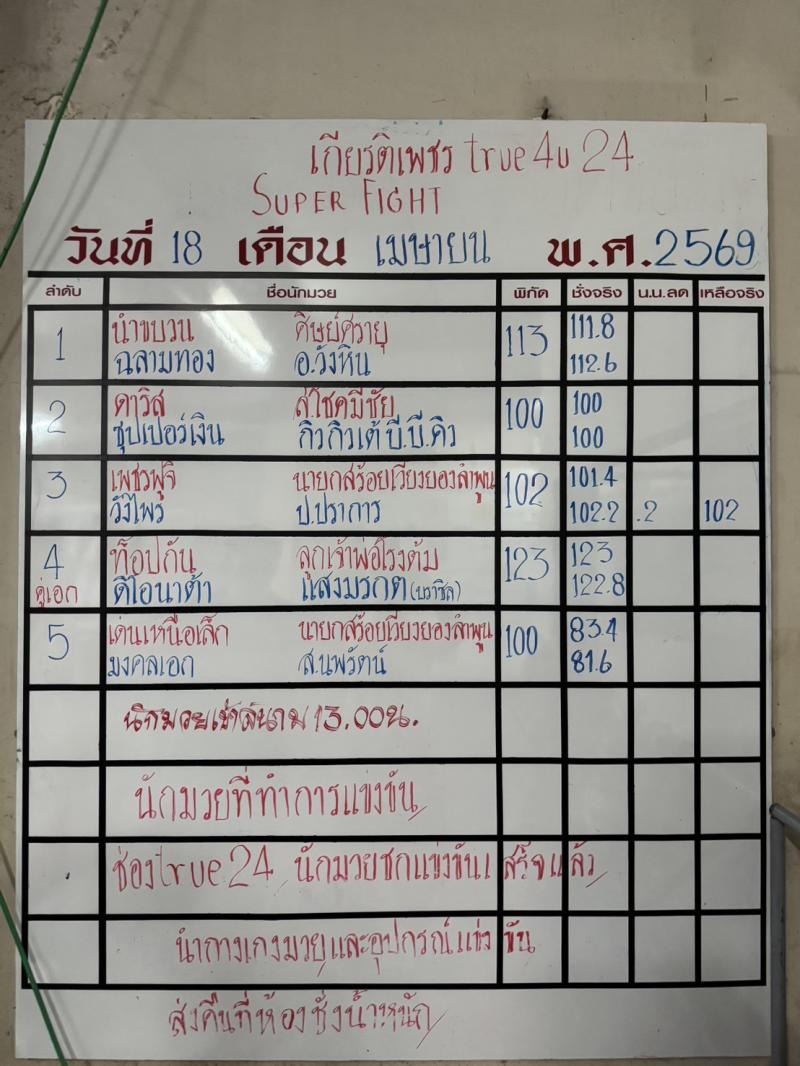 เกียรติเพชร true4u 24
SUPER FIGHT
วันที่ 18 เดือน เมษายน พ.ศ.2569
ลำดับ ชื่อนักมวย พิกัด ชั่งจริง น.น.ลด เหลือจริง
1 นำขบวน ศิษย์ศรายุ 113 111.8
ฉลามทอง อ.วังหิน 112.6
2 ดาวิส ส.โชคมีชัย 100 100
ซุปเปอร์เงิน กิวกิวเต้ บี.บี.คิว 100
3 เพชรฟูจิ นายกสร้อยเวียงยองลำพูน 102 101.4
วังไพร ป.ปราการ 102.2 .2 102
4 ท็อปกัน ลูกเจ้าพ่อโรงต้ม 123 123
คู่เอก ดิโอนาต้า แสงมรกต (บราซิล) 122.8
5 เด่นเหนือเล็ก นายกสร้อยเวียงยองลำพูน 100 83.4
มงคลเอก ส.นพรัตน์ 81.6
นักมวยเข้าสนาม 13.00น.
นักมวยที่ทำการแข่งขัน
ช่องtrue24 นักมวยชกแข่งขันเสร็จแล้ว
นำกางเกงมวยและอุปกรณ์แข่งขัน
ส่งคืนที่ห้องชั่งน้ำหนัก